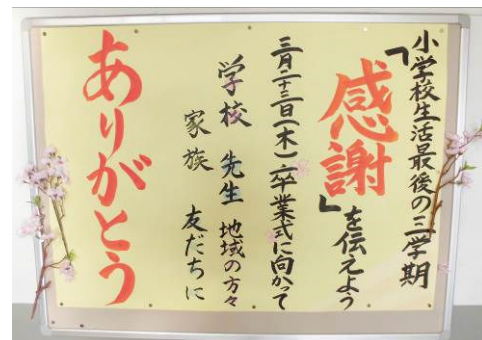 小学校生活最後の三学期
「感謝」を伝えよう
三月二十三日(木)卒業式に向かって
学校 先生 地域の方々
家族 友だちに
ありがとう